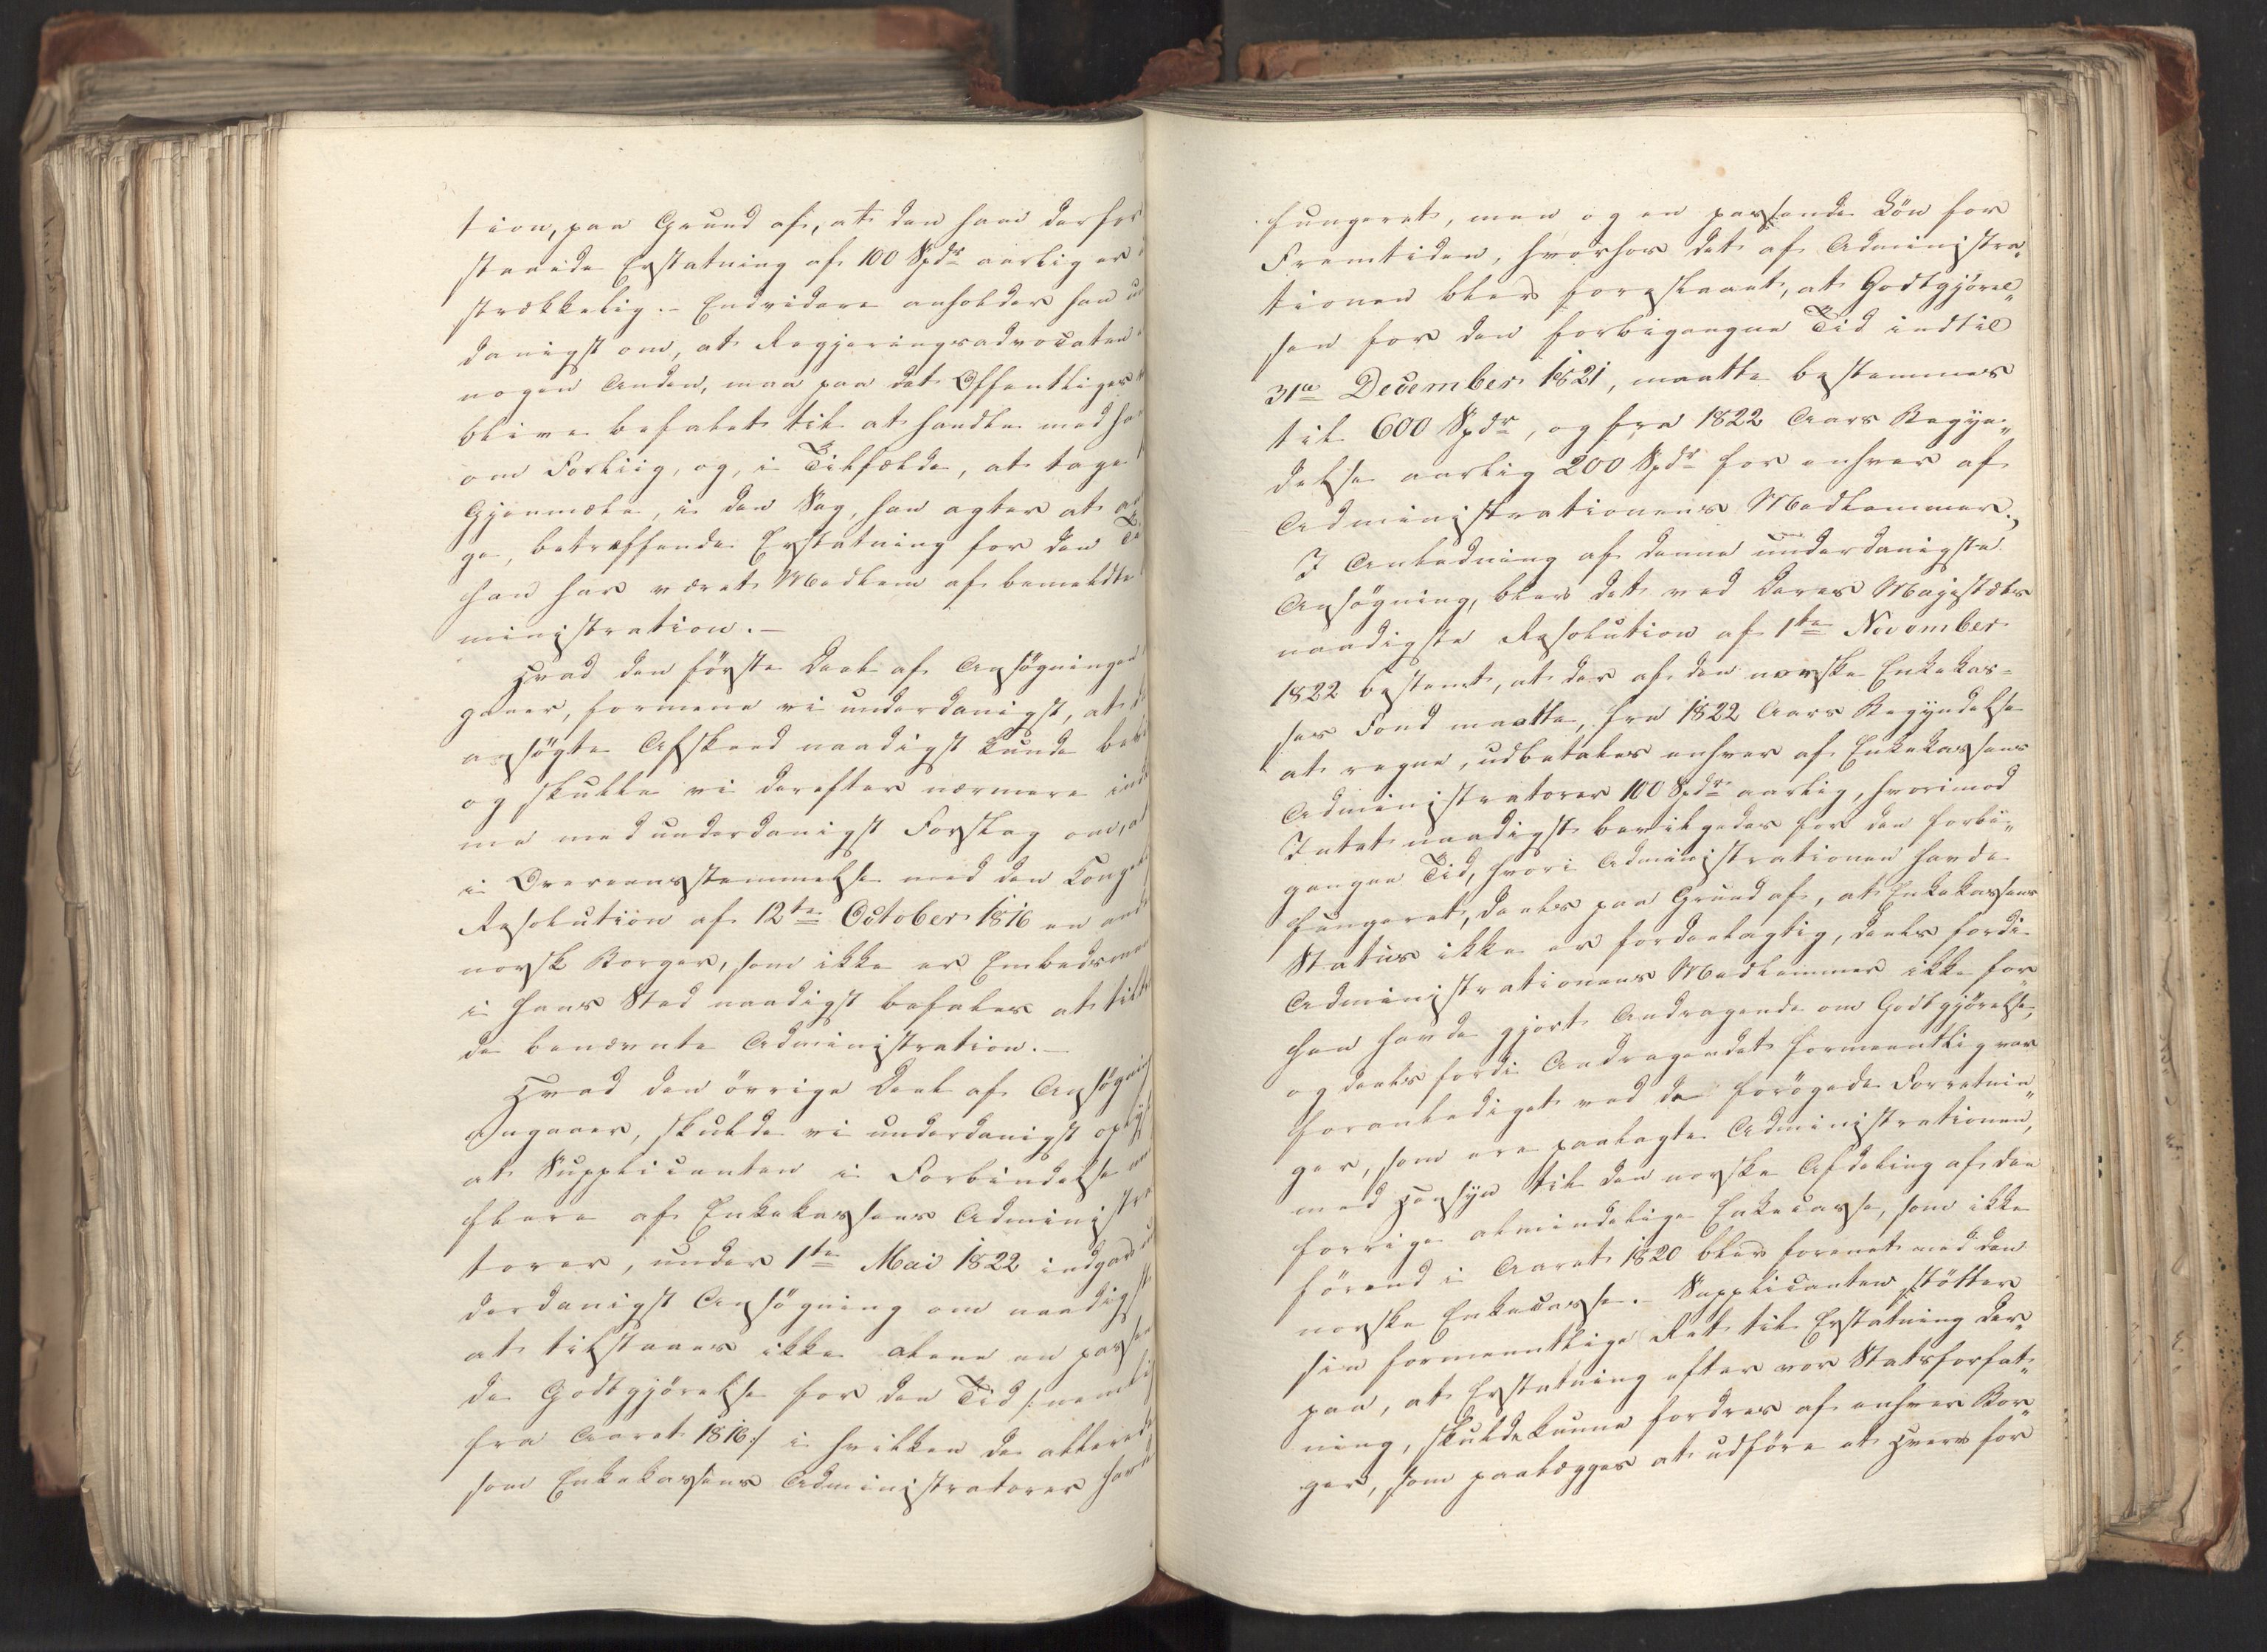 tion, paa Grund af, at den ham derfor
staaede Erstatning af 100 Spdr aarlig er
strækkelig. - Endvidere anholder han un
danigst om, at Regjeringsadvocaten
nogen Anden, maa paa det Offentliges
blive befalet til at handle med ha
om Forliig, og, i Tilfælde, at tage
Gjenmæle, i den Sag, han agter at an
ge, betræffende Erstatning for den Ti
han har været Medlem af bemeldte
ministration. -
Hvad den første Deel af Ansøgningen
gaaer, formene vi underdanigst, at
ansøgte Afskeed naadigst kunde be
og skulle vi derefter nærmere ind
me med underdanigst Forslag om, at
i Overeensstemmelse med den Konge
Resolution af 12te October 1816 en and
norsk Borger, som ikke er Embedsman
i hans Sted naadigst befales at tilt
de benævnte Administration. -
Hvad den øvrige Deel af Ansøgnin
angaaer, skulde vi underdanigst oply
at Supplicanten i Forbindelse me
flere af Enkekassens Administra
torer, under 1te Mai 1822 indgav u
derdanigst Ansøgning om naadigst
at tilstaaes ikke alene en passen
de Godtgjørelse for den Tid /: nemlig
fra Aaret 1816 :/ i hvilken de allerede
som Enkekassens Administratorer havd
fungeret, men og en passende Løn for
Fremtiden, hvorhos det af Administra„
tionen blev foreslaaet, at Godtgjørel„
sen for den forbigangne Tid indtil
31te December 1821, maatte bestemmes
til 600 Spdr, og fra 1822 Aars Begyn„
delse aarlig 200 Spdr for enhver af
Administrationens Medlemmer.
I Anledning af denne underdanigste
Ansøgning, blev det ved Deres Majestæts
naadigste Resolution af 1te November
1822 bestemt, at der af den norske Enkekas-
ses Fond maatte, fra 1822 Aars Begyndelse
at regne, udbetales enhver af Enkekassens
Administratorer 100 Spdr aarlig, hvorimod
Intet naadigst bevilgedes for den forbi„
gangne Tid, hvori Administrationen havde
fungeret, deels paa Grund af, at Enkekassens
Status ikke er fordeelagtig, deels fordi
Administrationens Medlemmer ikke før
hen havde gjort Andragende om Godtgjørelse,
og deels fordi Andragendet formeentlig var
foranlediget ved de forøgede Forretnin„
ger, som ere paalagte Administrationen,
med Hensyn til den norske Afdeling af den
forrige almindelige Enkecasse, som ikke
førend i Aaret 1820 blev forenet med den
norske Enkecasse. - Supplicanten støtter
sin formeentlige Ret til Erstatning der„
paa, at Erstatning efter vor Statsforfat„
ning, skulde kunne fordres af enhver Bor„
ger, som paalægges at udføre et Hverv for